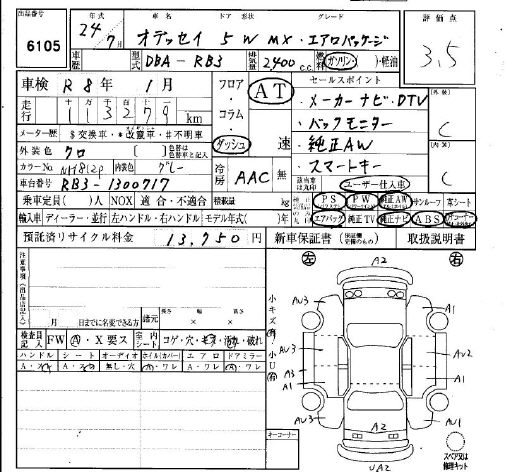 出品番号 6105
年式 24年 7月
車名 ドア 形状 グレード
オデッセイ 5W MX・エアロパッケージ
評価点 3.5
車歴
型式 DBA-RB3
排気量 2400 c.c.
燃料 ガソリン・軽油
車検 R8年 1月
走行 113279 km
メーター歴 $交換車・*改竄車・#不明車
外装色 クロ
カラーNo. NH812P 内装色 グレー
車台番号 RB3-1300717
フロア・コラム・ダッシュ
AT 速
冷房 AAC 無
セールスポイント
・メーカーナビ・DTV
・バックモニター
・純正AW
・スマートキー
ユーザー仕入車
外装 C
内装 C
乗車定員( )人 NOX 適合・不適合 積載量 kg
PS PW 純正AW サンルーフ 革シート
輸入車 ディーラー・並行 左ハンドル・右ハンドル モデル年式( )年
エアバッグ 純正TV 純正ナビ ABS
預託済リサイクル料金 13,750円
新車保証書 取扱説明書
注意事項(出品店記入)
月 日までに名変できる方
諸元 長さ 幅 高さ
× ×
検査員記入 FW Ⓐ・X要ス 室内シート コゲ・穴・キズ・汚れ・破れ
ハンドル シート オーディオ ホイル(カバー) エアロ ドアミラー
無し・穴 Ⓐ・ワレ A・ワレ Ⓐ・ワレ
オーナーコーナー
左 右
A2
AU3 A1
AU3 AU2
A3
A1 A1
AU3 A2 AU1
UA2
スペア又は修理キット